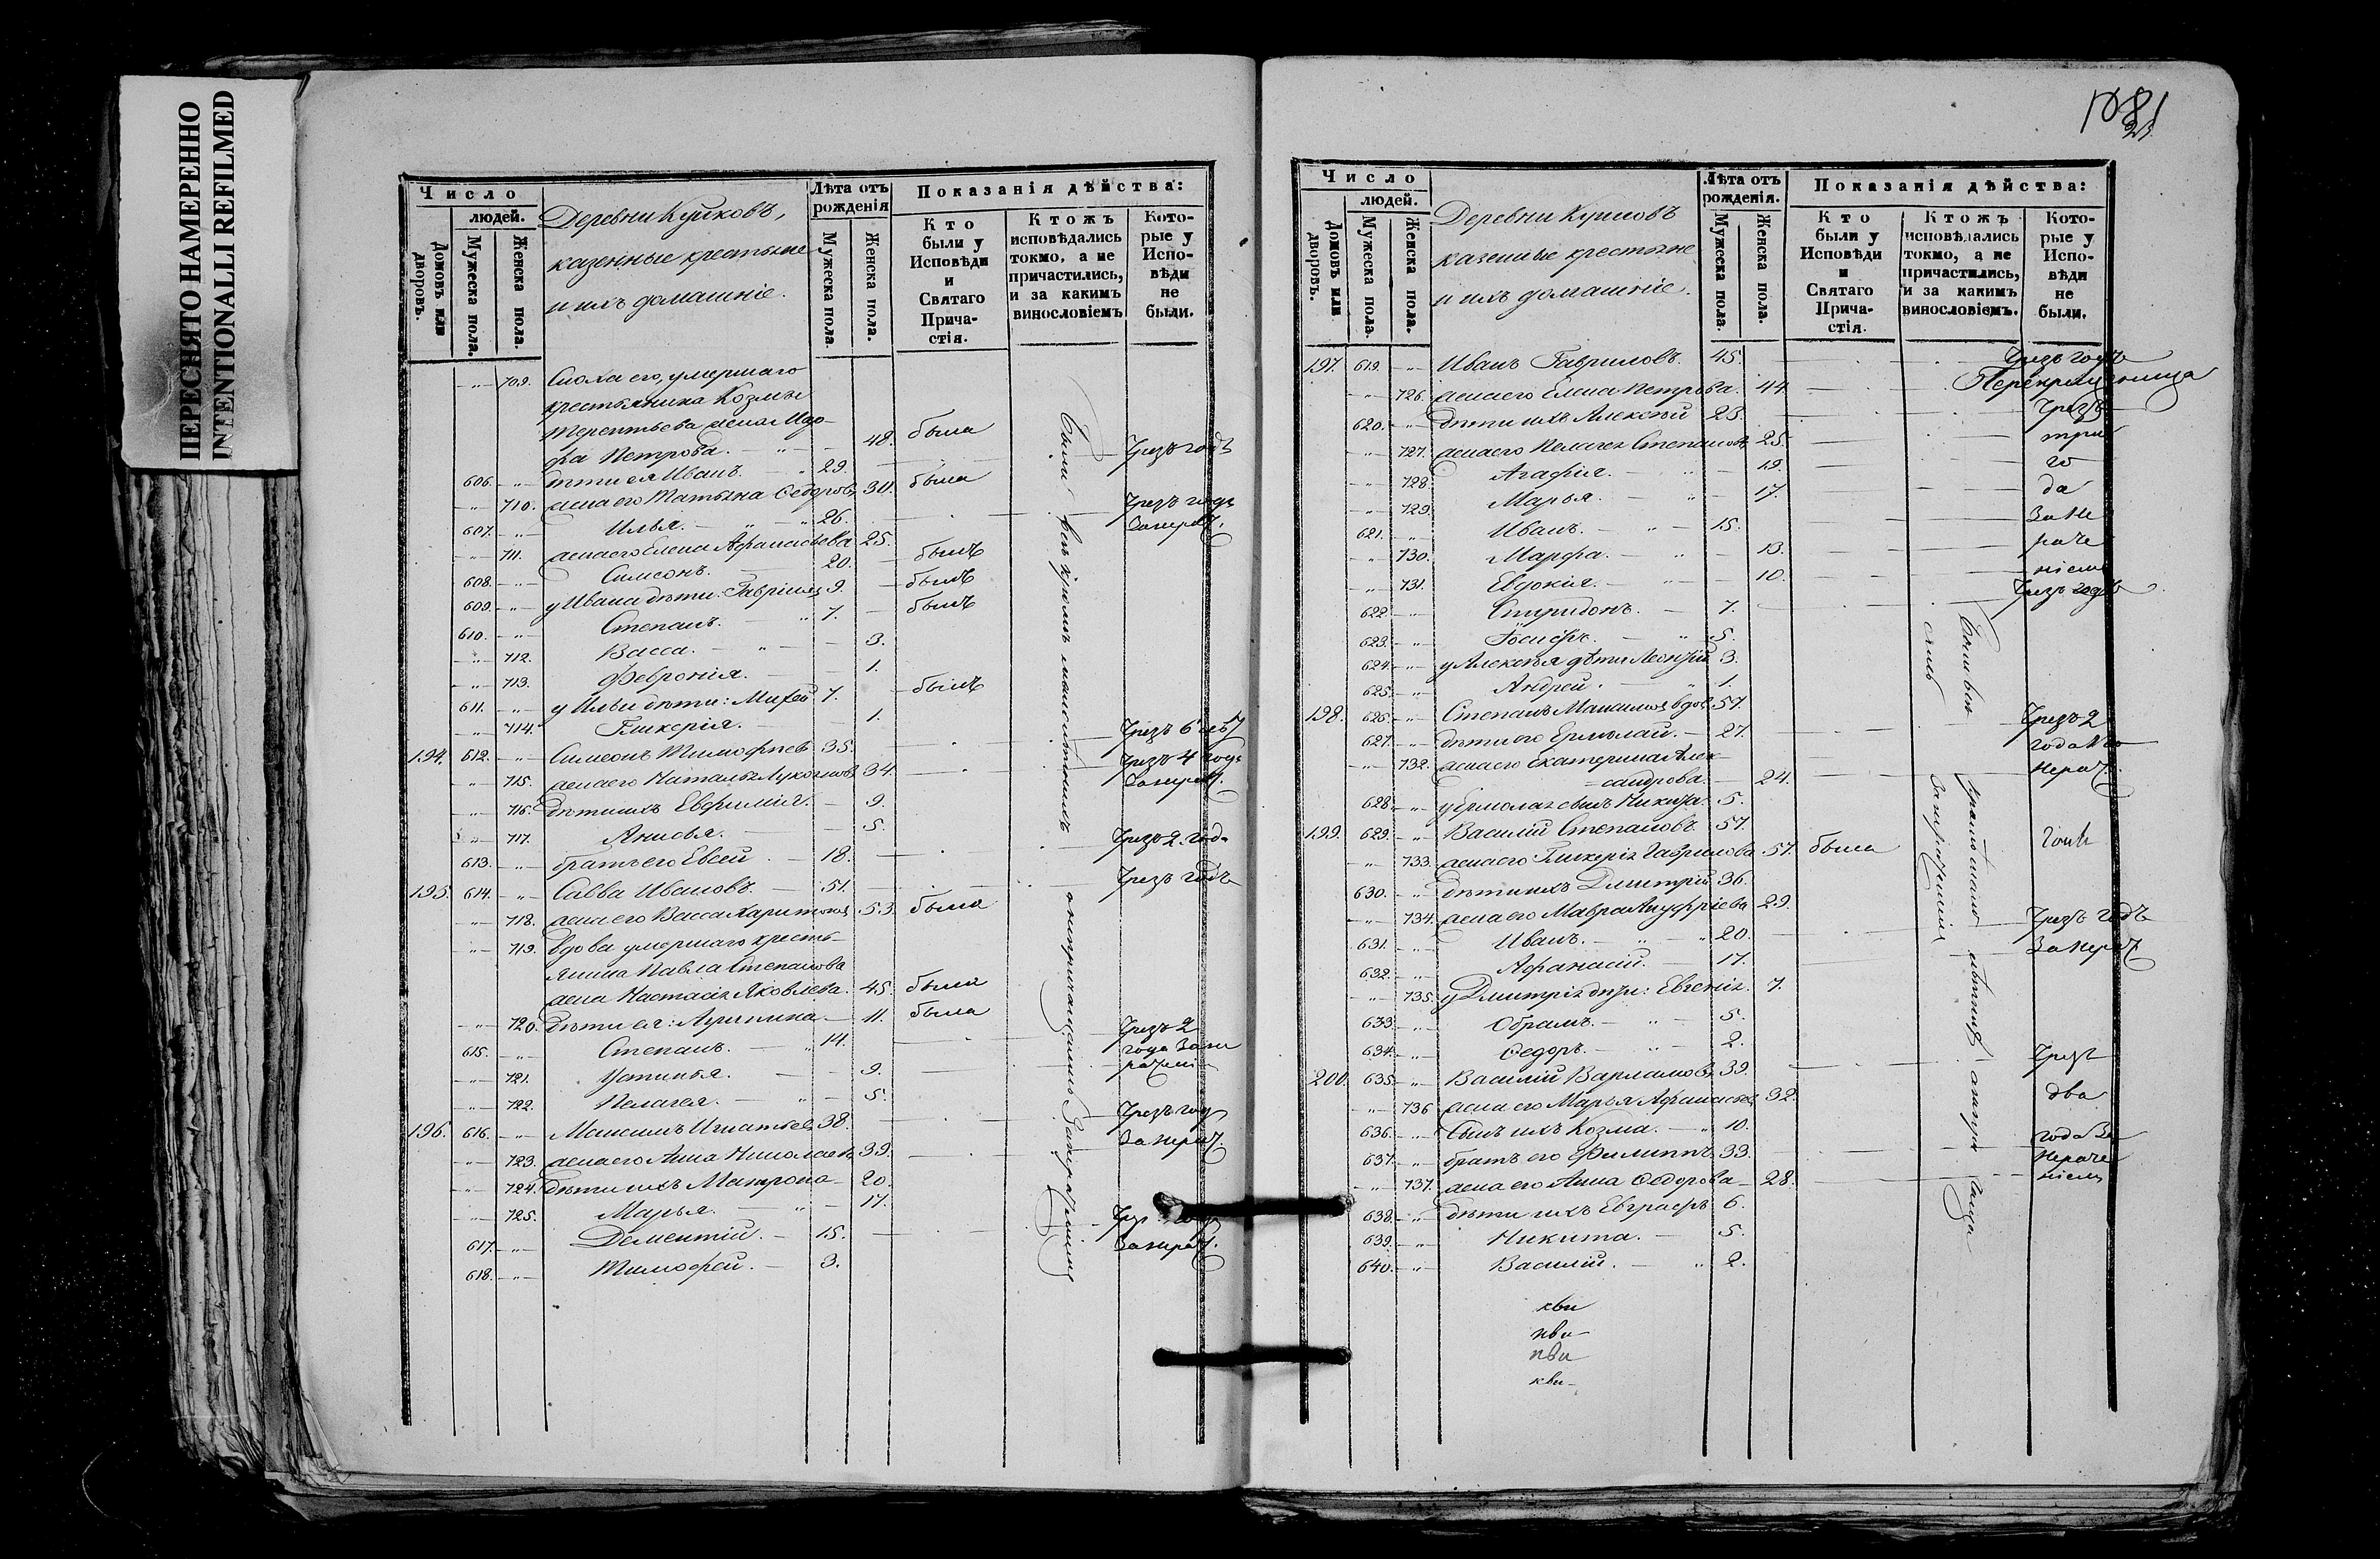 ПЕРЕСНЯТО НАМЕРЕННО
INTENTIONALLI REFILMED
Число
людей.
Домовъ или дворовъ.
Мужеска пола.
Женска пола.
Деревни
казенные крестьяне
и ихъ домашніе.
Лѣта отъ рожденія
Мужеска пола.
Женска пола.
Показанія дѣйства:
Кто были у Исповѣди и Святаго Прича-стія.
Ктожъ исповѣдались токмо, а не причастились, и за какимъ винословіемъ
Кото-рые у Испо-вѣди не были.
709. Сноха его, умершаго
крестьянина Козмы
Терентьева жена Мар-
фа Петрова. 48. была
606. дѣти ея Иванъ. 29. Чрезъ годъ
710. жена его Татьяна Ѳедоров. 30. была
607. Илья. 26. Чрезъ годъ
711. жена его Елена Афанасьева 25. Занерач.
608. Симеонъ. 20. былъ
609. у Ивана дѣти: Гавріилъ 9. былъ
610. Степанъ. 7. былъ
712. Васса. 3.
713. Февронія. 1.
611. у Ильи дѣти: Михей 7. былъ
714. Гликерія. 1.
194. 612. Симеонъ Тимофѣев 35. Чрезъ 6
715. жена его Наталья 34. Чрезъ 4 года Занерач.
716. дѣти ихъ Евфимія. 9.
717. Анисья. 5.
613. братъ его Евсей 18. Чрезъ 2. года
195. 614. Савва Ивановъ. 51. Чрезъ годъ
718. жена его Васса Харитонов 53. была
719. вдова умершаго кресть-
янина Павла Степанова
жена Настасія Яковлева. 45. была
720. дѣти ея: Агрипина 11. была
615. Степанъ. 14. Чрезъ 2
года Зане
721. Устинья. 9. раченіе
722. Пелагея. 5.
196. 616. Максимъ Игнатьев 38. Чрезъ год
723. жена его Анна Николаев 39. Занерач.
724. дѣти ихъ Матрона 20.
725. Марья. 17.
617. Дементій. 15. Занерач.
618. Тимофей. 3.
1081
Число
людей.
Домовъ или дворовъ.
Мужеска пола.
Женска пола.
Деревни
казенные крестьяне
и ихъ домашніе.
Лѣта отъ рожденія.
Мужеска пола.
Женска пола.
Показанія дѣйства:
Кто были у Исповѣди и Святаго Прича-стія.
Ктожъ исповѣдались токмо, а не причастились, и за какимъ винословіемъ.
Кото-рые у Испо-вѣди не были.
197. 619. Иванъ Гавриловъ. 45. Чрезъ годъ
726. жена его Елена Петрова. 44.
620. дѣти ихъ Алексѣй 23. Чрезъ
727. жена его Пелагея Степанов 25. три
728. Агафія. 19. го
729. Марья. 17. да
621. Иванъ. 15. За не
730. Марфа. 13. раче
731. Евдокія. 10. ніемъ
622. Спиридонъ. 7. Чрезъ годъ
623. Іосифъ. 5.
624. у Алексѣя дѣти Леонтій 3.
625. Андрей. 1.
198. 626. Степанъ Максимов вдов 57. Чрезъ 2
627. дѣти его Ермолай. 27. года
732. жена его Екатерина Алек- нерач.
сандрова. 24.
628. у Ермолая сынъ Никита. 5.
199. 629. Василій Степановъ 57.
733. жена его Гликерія Гаврилова 57. была
630. дѣти ихъ Дмитрій 36.
734. жена его Мавра Ануфріева 29. Чрезъ годъ
631. Иванъ. 20. Занерач
632. Афанасій. 17.
735. у Дмитрія дѣти: Евгенія. 7.
633. Обрамъ. 5.
634. Ѳедоръ. 2.
200. 635. Василій Варламов 39. Чрезъ
736 жена его Марья Афанасьев 32. два
636. сынъ ихъ Козма. 10. года За
637. братъ его Филиппъ 33. нераче
737. жена его Анна Ѳедорова 28. ніемъ
638. дѣти ихъ Евграфъ 6.
639. Никита. 5.
640. Василій. 2.